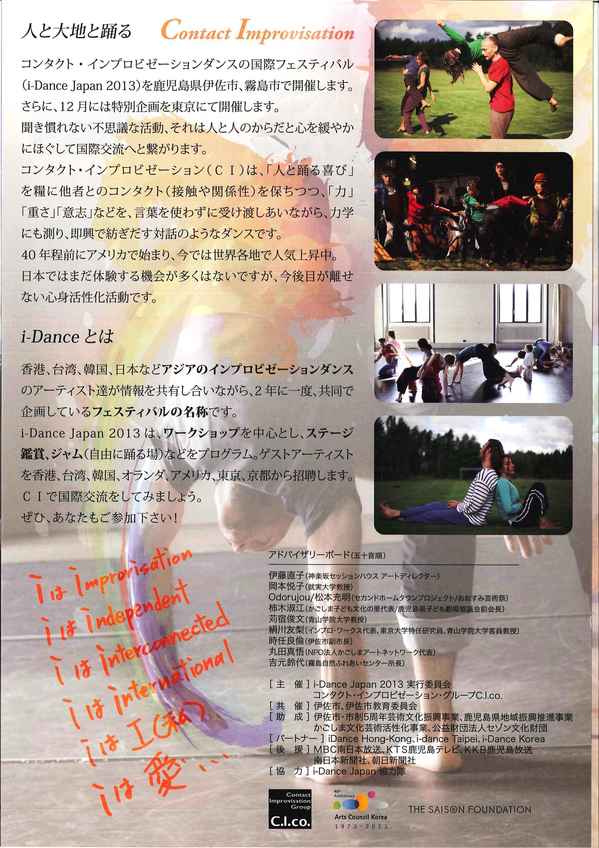 人と大地と踊る Contact Improvisation
コンタクト・インプロビゼーションダンスの国際フェスティバル
(i-Dance Japan 2013)を鹿児島県伊佐市、霧島市で開催します。
さらに、12月には特別企画を東京にて開催します。
聞き慣れない不思議な活動、それは人と人のからだと心を緩やか
にほぐして国際交流へと繋がります。
コンタクト・インプロビゼーション(CI)は、「人と踊る喜び」
を糧に他者とのコンタクト(接触や関係性)を保ちつつ、「力」
「重さ」「意志」などを、言葉を使わずに受け渡しあいながら、力学
にも測り、即興で紡ぎだす対話のようなダンスです。
40年程前にアメリカで始まり、今では世界各地で人気上昇中。
日本ではまだ体験する機会が多くはないですが、今後目が離せ
ない心身活性化活動です。
i-Danceとは
香港、台湾、韓国、日本などアジアのインプロビゼーションダンス
のアーティスト達が情報を共有し合いながら、2年に一度、共同で
企画しているフェスティバルの名称です。
i-Dance Japan 2013は、ワークショップを中心とし、ステージ
鑑賞、ジャム(自由に踊る場)などをプログラム。ゲストアーティスト
を香港、台湾、韓国、オランダ、アメリカ、東京、京都から招聘します。
CIで国際交流をしてみましょう。
ぜひ、あなたもご参加下さい!
iはimprovisation
iはindependent
iはinterconnected
iはinternational
iはI(私)
iは愛...
アドバイザリーボード(五十音順)
伊藤直子(神楽坂セッションハウス アートディレクター)
岡本悦子(就実大学教授)
Odorujou/松本充明(セカンドホームタウンプロジェクト/おおすみ芸術祭)
柿木淑江(かごしま子ども文化の里代表/鹿児島県子ども劇場協議会前会長)
苅宿俊文(青山学院大学教授)
絹川友梨(インプロ・ワークス代表、東京大学特任研究員、青山学院大学客員教授)
時任良倫(伊佐市副市長)
丸田真悟(NPO法人かごしまアートネットワーク代表)
吉元鈴代(霧島自然ふれあいセンター所長)
[主 催] i-Dance Japan 2013 実行委員会
コンタクト・インプロビゼーション・グループC.I.co.
[共 催] 伊佐市、伊佐市教育委員会
[助 成] 伊佐市・市制5周年芸術文化振興事業、鹿児島県地域振興推進事業
かごしま文化芸術活性化事業、公益財団法人セゾン文化財団
[パートナー] iDance Hong-Kong、i-dance Taipei、i-Dance Korea
[後 援] MBC南日本放送、KTS鹿児島テレビ、KKB鹿児島放送
南日本新聞社、朝日新聞社
[協 力] i-Dance Japan 協力隊
Contact
Improvisation
Group
C.I.co.
Arts Council Korea
1973-2013
THE SAISON FOUNDATION